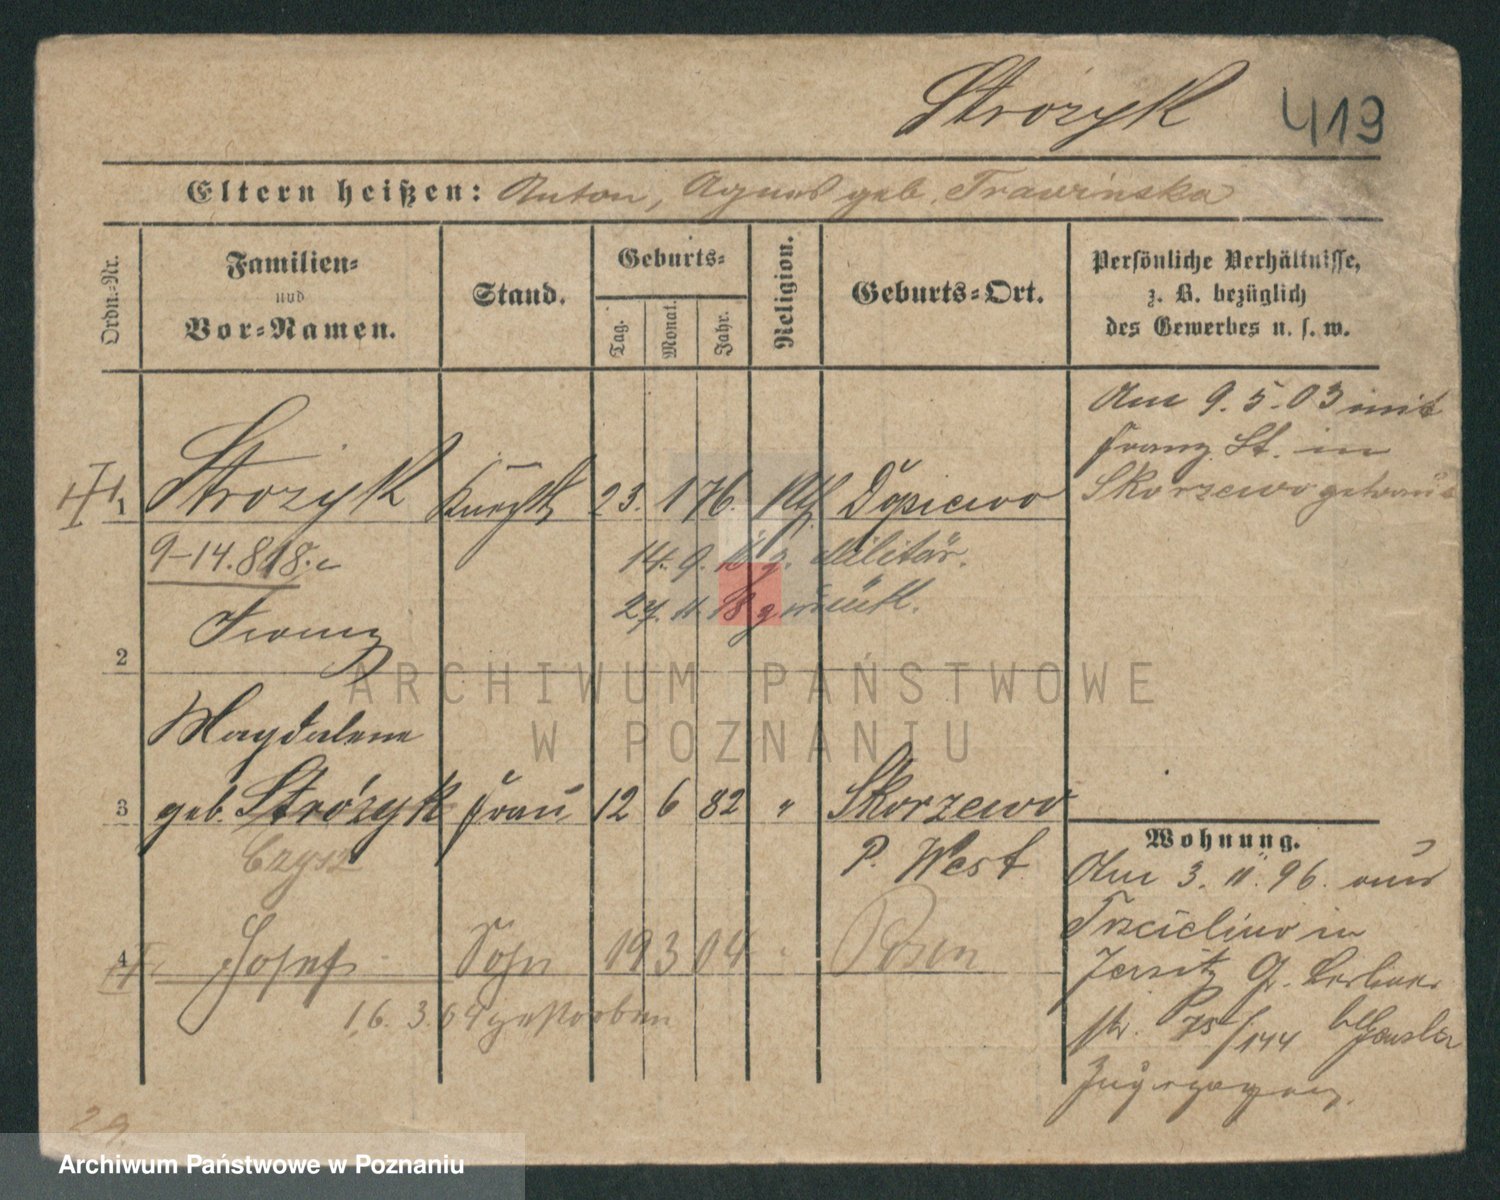 Strózyk 419
Eltern heißen: Anton, Agnes geb. Trawinska
Ordn.-Nr.
Familien-
und
Vor-Namen.
Stand.
Geburts-
Tag.
Monat.
Jahr.
Religion.
Geburts-Ort.
Persönliche Verhältnisse,
z. B. bezüglich
des Gewerbes u. s. w.
Am 9. 5. 03 mit
Franz St. in
Skorzewo getraut
1 Strozyk Knecht 23. 1 76. Kth Dopiewo
14. 9. Militär.
27. 11. 18 zurück.
2 Franz
Magdalena
3 geb. Strózyk Frau 12 6 82 " Skorzewo
Czysz P. West
4 Josef Sohn 19 3 04 Posen
16. 3. 04 gestorben
Wohnung.
Am 3. 11. 96. aus
in
Jersitz Gr. Berliner
str. 75/144 bei
Zugezogen.
29.
ARCHIWUM PAŃSTWOWE
W POZNANIU
Archiwum Państwowe w Poznaniu